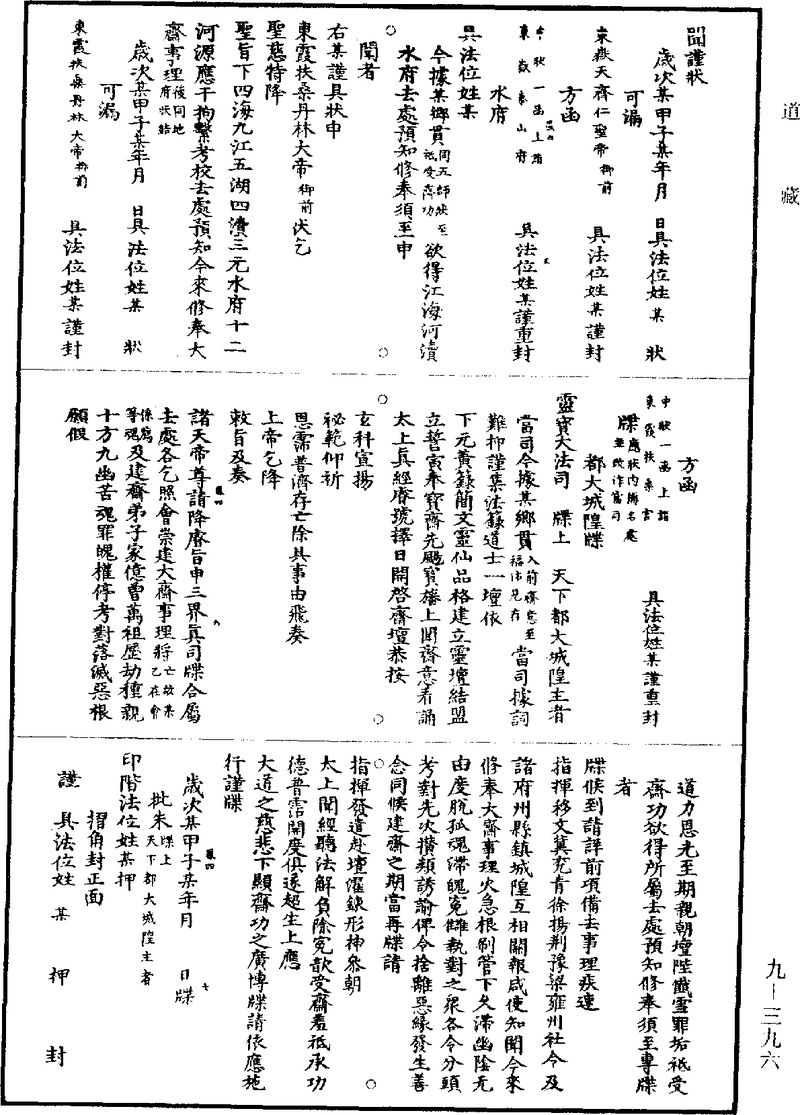 道藏
聞謹狀
歲次某甲子某年月　日具法位姓　某　狀
可漏
東嶽天齊仁聖帝　御前　具法位姓某謹封
方函
申狀一函上詣
東嶽泰山府　具法位姓某謹重封
水府
具法位姓某
今據某鄉貫同五師狀至祗受齋功欲得江海河瀆
水府去處預知修奉須至申
聞者
右某謹具狀申
東霞扶桑丹林大帝　御前　伏乞
聖慈特降
聖旨下四海九江五湖四瀆三元水府十二
河源應干拘繫考校去處預知今來修奉大
齋事理後同地府狀結
歲次某甲子某年月　日具法位姓某　狀
可漏
東霞扶桑丹林大帝御前　具法位姓某謹封
方函
申狀一函上詣
東霞扶桑宮　具法位姓某謹重封
牒應狀內
都大城隍牒
靈寶大法司　牒上　天下都大城隍主者
當司今據某鄉貫入前齋意至當司據詞
難抑謹集法籙道士一壇依
下元黃籙簡文靈仙品格建立靈壇結盟
立誓寅奉寶齋先颺寶旛上聞齋意看誦
太上眞經麽號擇日開啓齋壇恭按
玄科宣揚
祕範仰祈
恩霈普濟存亡除具事由飛奏
上帝乞降
敕旨及奏
諸天帝尊請降麽旨申三界眞司牒合屬
去處各乞照會崇建大齋事理將亡故某乙在會
等魂及建齋弟子家億曾萬祖歷劫種親
十方九幽苦魂罪魄權停考對落滅惡根
願假
道力恩光至期親朝壇陛懺雪罪垢祗受
齋功欲得所屬去處預知修奉須至專牒
者
牒候到請詳前項備去事理疾速
指揮移文冀兗青徐揚荊豫梁雍州社令及
諸府州縣鎮城隍互相關報咸使知聞今來
修奉大齋事理火急根刷管下久滯幽陰无
由度脫孤魂滯魄冤讎執對之衆各令分頭
考對先次攢類誘諭俾令捨離惡緣發生善
念同候建齋之期當再牒請
指揮發遣赴壇濯鍊形神叅朝
太上聞經聽法解負除冤歆受齋羞祗承功
德普霑開度俱遂超生上應
大道之慈悲下顯齋功之廣博牒請依應施
行謹牒
歲次某甲子某年月　日牒
批朱牒上天下都大城隍主者
印階法位姓某押
摺角封正面
謹　具法位姓　某　押　封
九－三九六